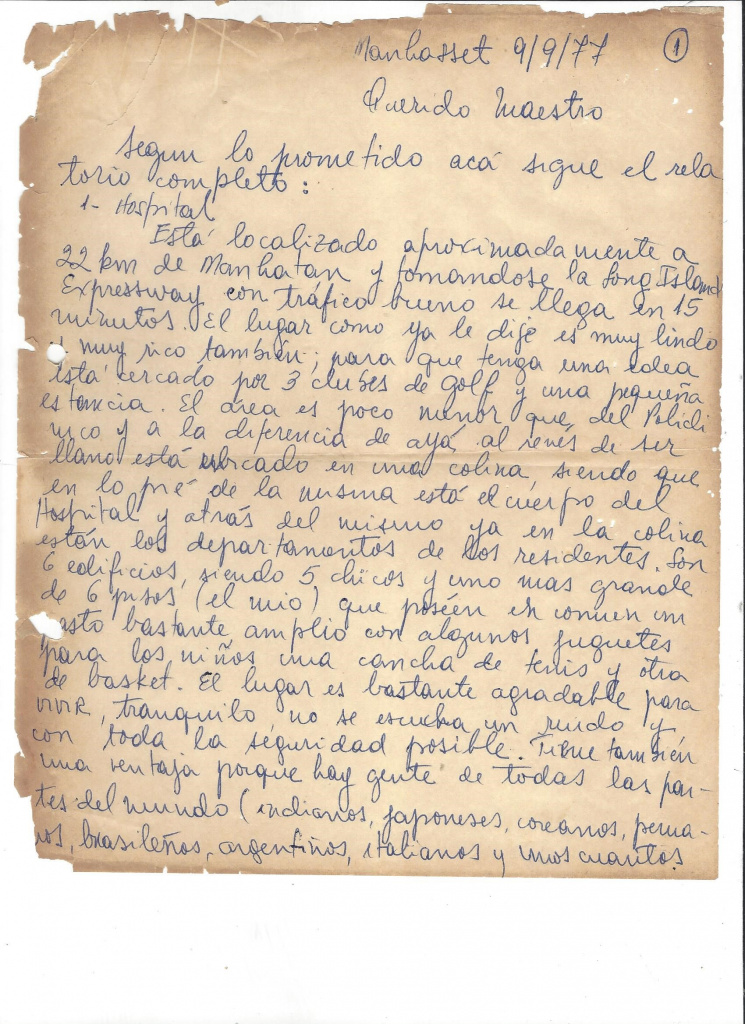 Manhasset 9/9/77 1
Querido Maestro
Segun lo prometido acá sigue el rela
torio completo:
1- Hospital
Está localizado aproximadamente a
22 km de Manhatan y tomandose la Long Island
Expressway con tráfico bueno se llega en 15
minutos. El lugar como ya le dije es muy lindo
y muy rico también; para que tenga una idea
está cercado por 3 clubes de golf y una pequeña
estancia. El área es poco menor que del Policli
nico y a la diferencia de ayá al revés de ser
llano está ubicado en una colina, siendo que
en lo pié de la misma está el cuerpo del
Hospital y atrás del mismo ya en la colina
están los departamentos de los residentes. Son
6 edificios, siendo 5 chicos y uno mas grande
de 6 pisos (el mio) que poséen en comun un
pasto bastante amplio con algunos juguetes
para los niños una cancha de tenis y otra
de basket. El lugar es bastante agradable para
vivir, tranquilo no se escucha un ruido y
con toda la seguridad posible. Tiene también
una ventaja porque hay gente de todas las par-
tes del mundo (indianos, japoneses, coreanos, perua-
nos, brasileños, argentinos, italianos y unos cuantos